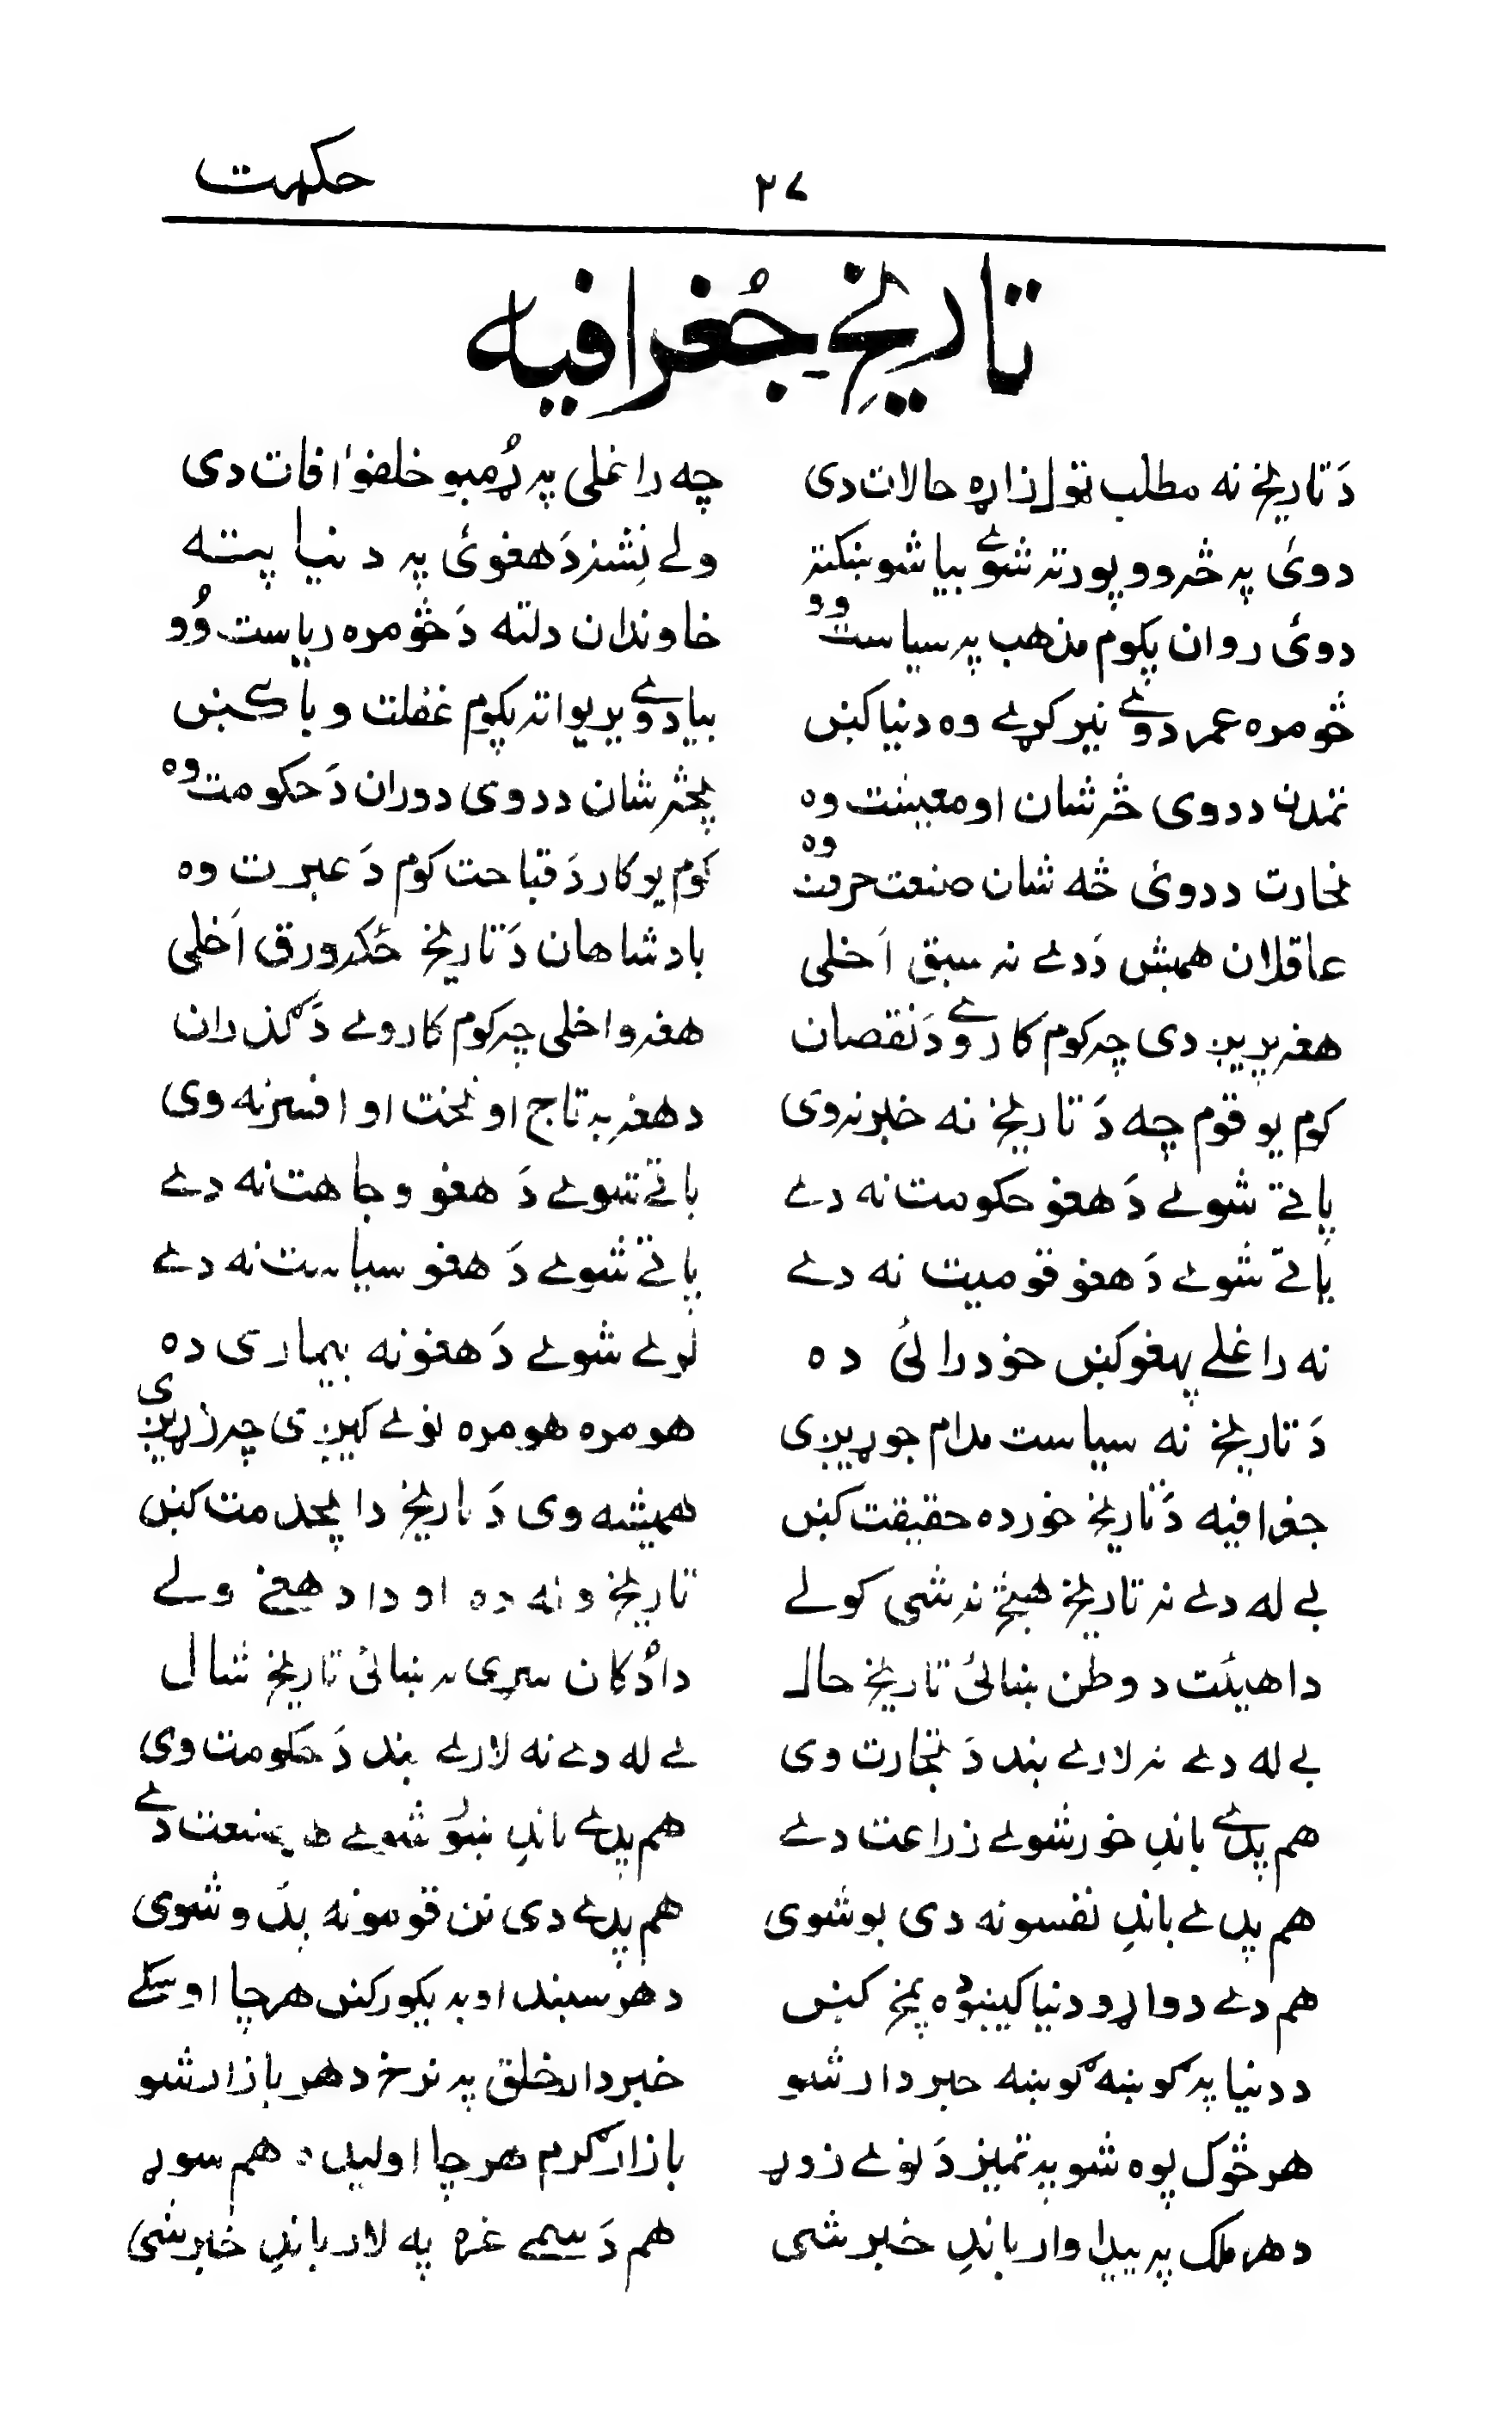 حکمت ۲۷
تاریخِ جُغرافیه
دَ تاریخ نه مطلب ټول زاړه حالات دی چه راغلی په ړُمبو خلقو اٰفات دی
دوئ په څه وو پورته شوے بیا شو ښکته ولے نشته دَ هغوئ په دنیا پته
دوئ روان پکوم مذهب په سیاست وو خاوندان دلته دَ څومره ریاست وُو
څومره عمر دوے تیر کړے وه دنیا کښ بیا دوے بریوانه پکوم غفلت و باکښ
تمدن د دوی څه شان او معیشت وه پڅه شان د دوی دوران دَ حکومت وه
تجارت د دوئ څه شان صنعت حرفت وه کوم یو کار دَ قباحت کوم دَ عبرت وه
عاقلان همیش دَ دے نه سبق اَخلی بادشاهان دَ تاریخ ځکه ورق اَخلی
هغه پریږدی چه کوم کار وے دَ نقصان هغه واخلی چه کوم کار وے دَ ګذران
کوم یو قوم چه دَ تاریخ نه خبر نه وی د هغه به تاج او تخت او افسر نه وی
پاتے شوے دَ هغو حکومت نه دے پاتے شوے دَ هغو وجاهت نه دے
پاتے شوے دَ هغو قومیت نه دے پاتے شوے دَ هغو سیاست نه دے
نه راغلے پهغو کښ خود رائی ده لرے شوے دَ هغو نه بیماری ده
دَ تاریخ نه سیاست مدام جوړیږی هومره هومره نوے کیږی چه زړیږی
جغرافیه دَ تاریخ خور ده حقیقت کښ همیشه وی دَ تاریخ دا پخدمت کښ
بے له دے نه تاریخ هیڅ نه شی کولے تاریخ ونه ده او دا د هغے ولے
دا هیئت د وطن ښائی تاریخ حال دا دُکان سړی ته ښائی تاریخ شال
بے له دے نه لارے بند دَ تجارت وی بے له دے نه لارے بند دَ حکومت وی
هم پدے باندِ خور شوے زراعت دے هم پدے باندِ ښۀ شوے صنعت دے
هم پدے باندِ نفسونه دی یو شوی هم پدے دی نن قومونه بدو شوی
هم دے دواړو دنیا کینوه پمخ کښ د هر سیند اوبه پکور کښ هر چا اوسکے
د دنیا په ګوښه ګوښه خبردار شو خبردار خلق په نرخ د هر بازار شو
هر څوک پوه شو په تمیز دَ نوے زوړ بازار ګرم هر چا اولیدہ هم سوړ
د هر ملک په پیداوار باندِ خبر شی هم دَ سمے غره په لار باندِ خبر شی